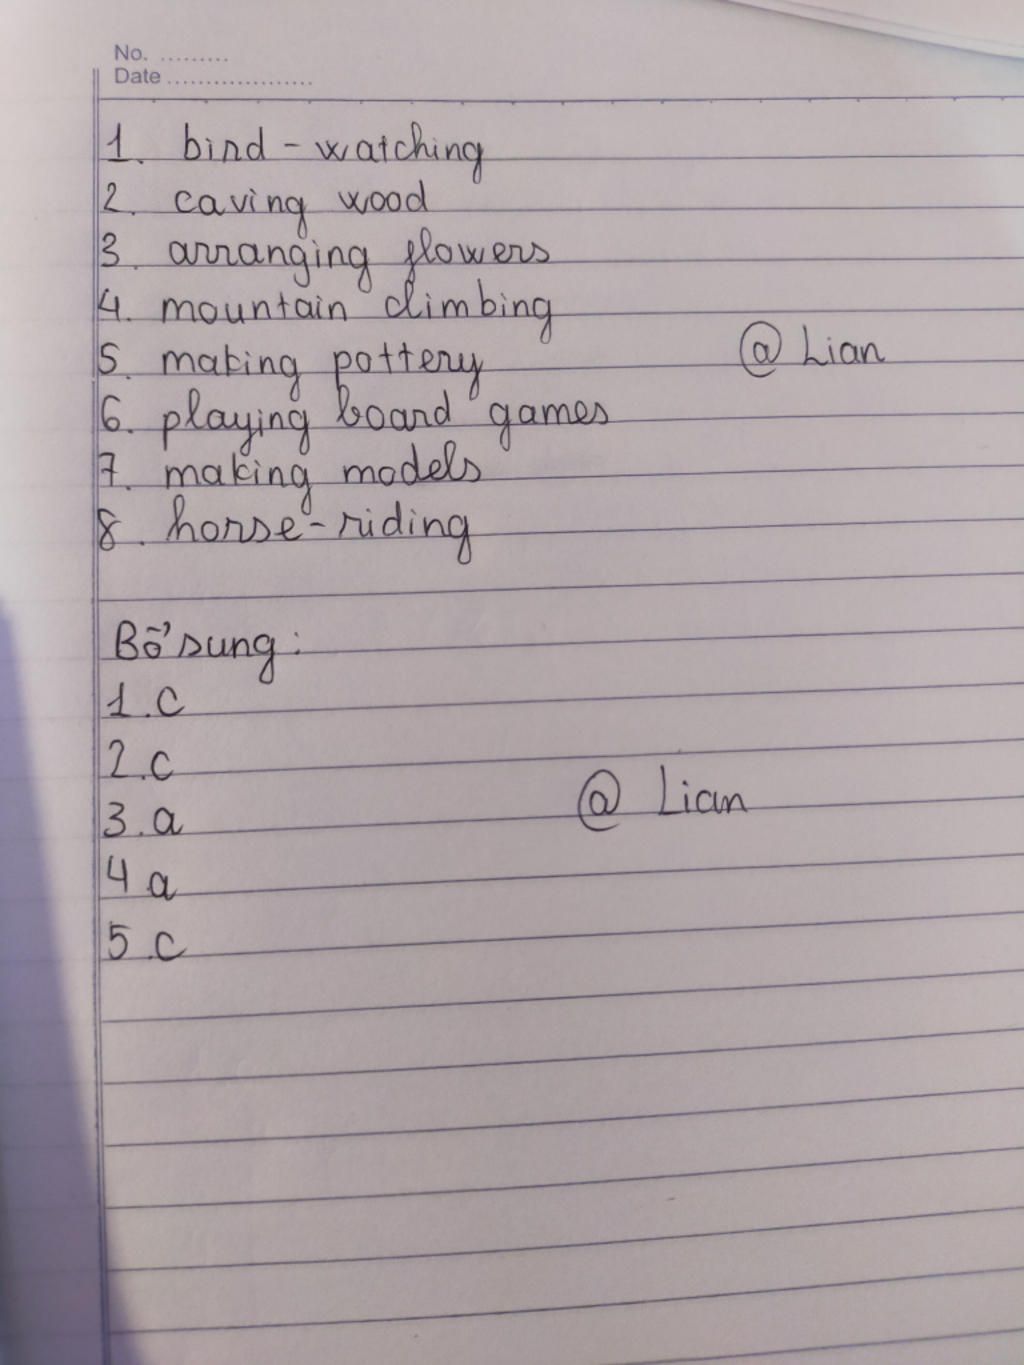 No. .........
Date ...................
1. bird - watching
2. caving wood
3. arranging flowers
4. mountain climbing
5. making pottery
@ Lian
6. playing board games
7. making models
8. horse-riding
Bổ sung:
1. c
2. c
3. a
@ Lian
4 a
5 c